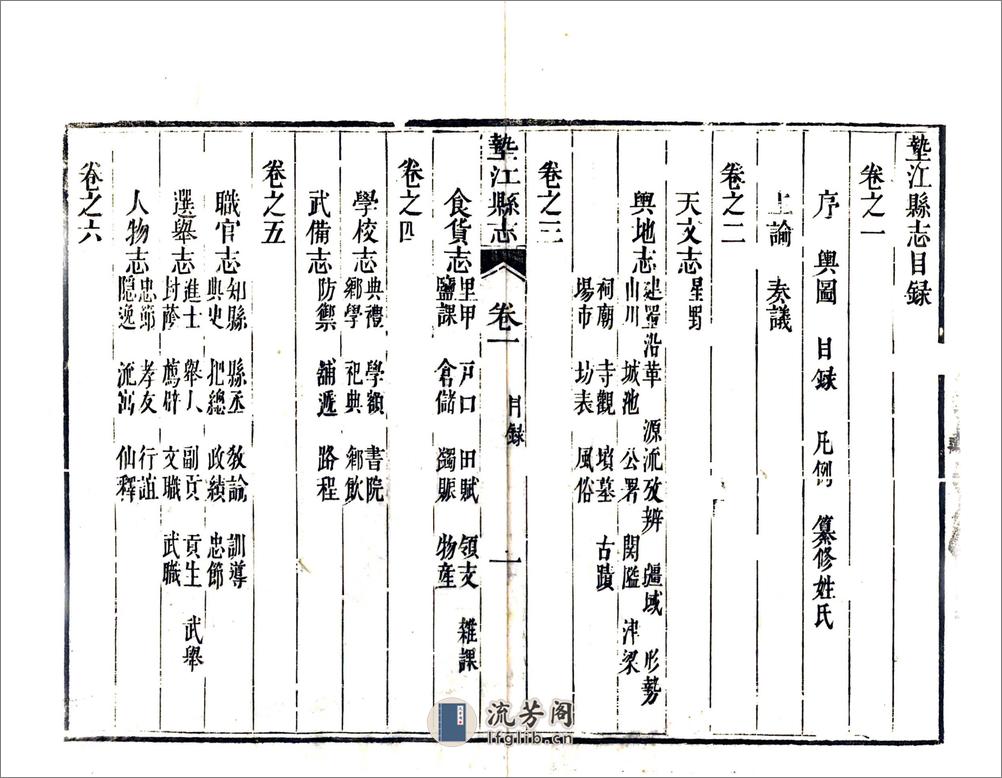 墊江縣志目録
卷之一
序 輿圖 目録 凡例 纂修姓氏
上諭 奏議
卷之二
天文志 星野
輿地志 建置沿革 源流攷辨 疆域 形勢
山川 城池 公署 関隘 津梁
祠廟 寺觀 墳墓 古蹟
場市 坊表 風俗
卷之三
墊江縣志 卷一 目録 一
食貨志 里甲 戸口 田賦 領支 雜課
鹽課 倉儲 蠲賑 物産
卷之四
學校志 典禮 學額 書院
鄉學 祀典 鄉飲
武備志 防禦 舖遞 路程
卷之五
職官志 知縣 縣丞 教諭 訓導
典史 把總 政績 忠節
選舉志 進士 舉人 副貢 貢生 武舉
封蔭 薦辟 文職 武職
人物志 忠節 孝友 行誼
隱逸 流寓 仙釋
卷之六
流芳阁
lfglib.cn